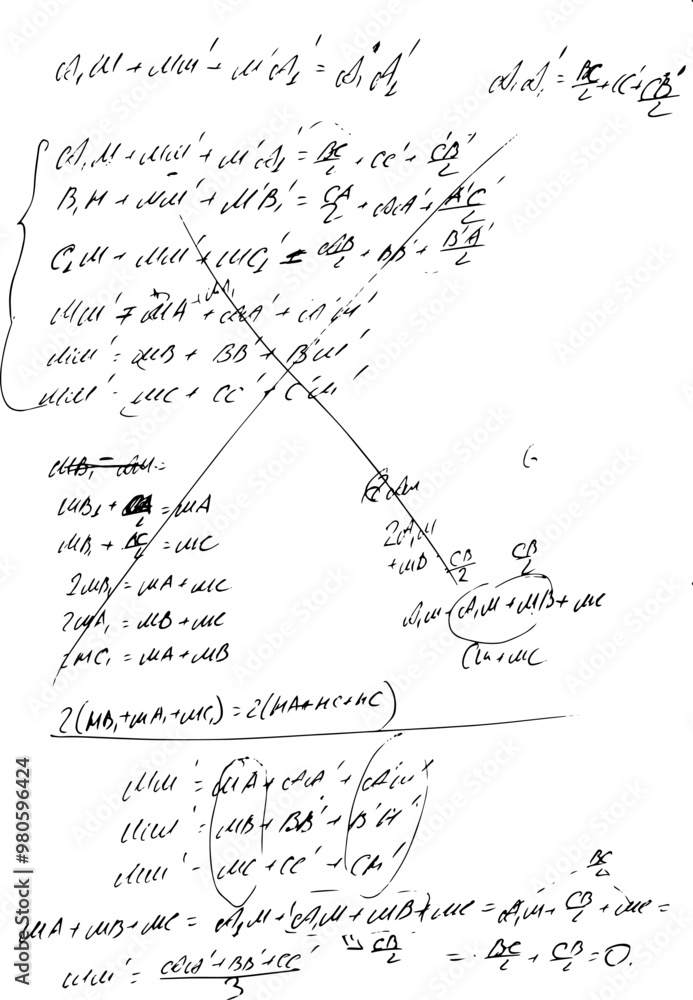 A₁M + MM' + M'A₁' = A₁A₁'
A₁A₁' = BC/2 + CC' + C'B'/2
A₁M + MM' + M'A₁' = BC/2 + CC' + C'B'/2
B₁M + MM' + M'B₁' = CA/2 + AA' + A'C'/2
C₁M + MM' + MC₁' = AB/2 + BB' + B'A'/2
MM' = MA + AA' + A'M'
MM' = MB + BB' + B'M'
MM' = MC + CC' + C'M'
MB₁ + CA/2 = MA
MB₁ + AC/2 = MC
2MB₁ = MA + MC
2MA₁ = MB + MC
2MC₁ = MA + MB
2A₁M
+ MB
CB/2
CB/2
A₁M + A₁M + MB + MC
2(MB₁ + MA₁ + MC₁) = 2(MA + MC + MC)
MM' = MA + AA' + A'M'
MM' = MB + BB' + B'M'
MM' = MC + CC' + CM'
BC/2
MA + MB + MC = A₁M + A₁M + MB + MC = A₁M + CB/2 + MC =
CB/2
= BC/2 + CB/2 = 0.
MM' = AA' + BB' + CC' / 3
Adobe Stock | #980596424